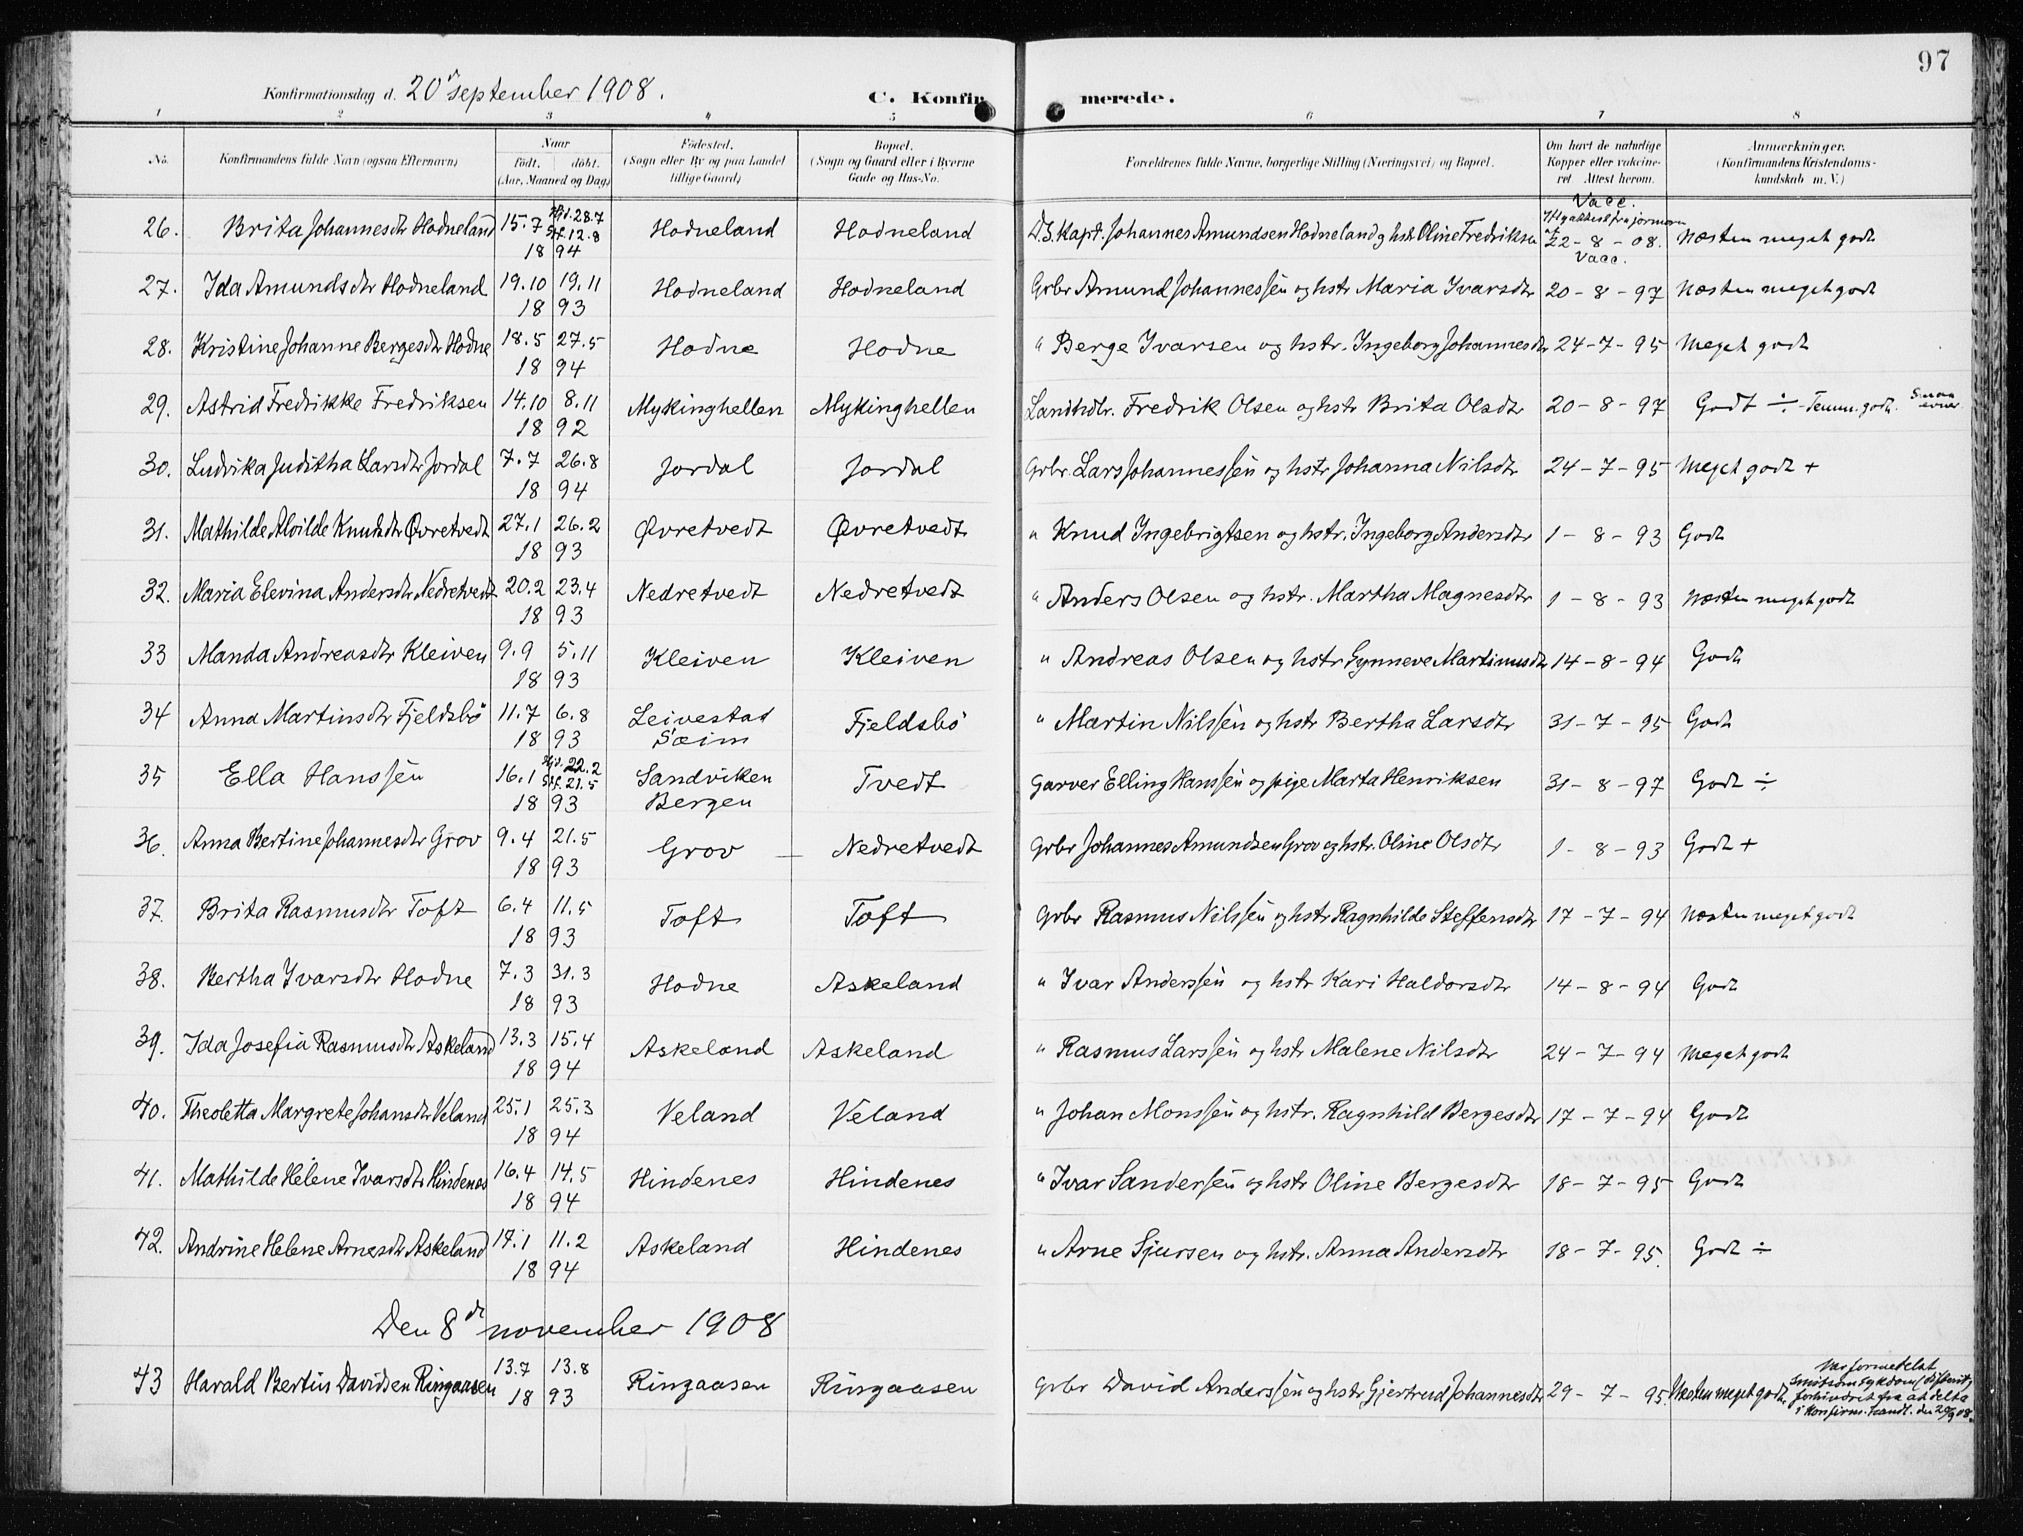 97
Konfirmationsdag d. 20de september 1908.
C. Konfirmerede.
1 2 3 4 5 6 7 8
No. Konfirmandens fulde Navn (ogsaa Efternavn) Naar født. døbt. (Aar, Maaned og Dag) Fødested. (Sogn eller By og paa Landet tillige Gaard) Bopæl. (Sogn og Gaard eller i Byerne Gade og Hus-No. Forældrenes fulde Navne, borgerlige Stilling (Næringsvei) og Bopæl. Om havt de naturlige Kopper eller vakcineret. Attest herom. Anmærkninger. (Konfirmandens Kristendomskundskab m. V.)
26. Brita Johannesdtr Hodneland 15.7 Hjd. 28.7 Stf. 12.8 1894 Hodneland Hodneland D.S. Kapt. Johannes Amundsen Hodneland og hstr Oline Fredriksen Vacc. 22-8-08. Næsten meget godt
27. Ida Amundsdtr Hodneland 19.10 19.11 1893 Hodneland Hodneland Grbr Amund Johannessen og hstr Maria Ivarsdtr Vacc. 20-8-97 Næsten meget godt
28. Kristine Johanne Bergesdtr Hodne 18.5 27.5 1894 Hodne Hodne " Berge Ivarsen og hstr. Ingeborg Johannesdtr 24-7-95 Meget godt
29. Astrid Fredrikke Fredriksen 14.10 8.11 1892 Mykinghellen Mykinghellen Landhdlr. Fredrik Olsen og hstr Brita Olsdtr 20-8-97 Godt ÷ - Temm. godt. Smaa evner.
30. Ludvika Juditha Larsdtr Jordal 7.7 26.8 1894 Jordal Jordal Grbr. Lars Johannessen og hstr Johanna Nilsdtr 24-7-95 Meget godt +
31. Mathilde Alvilde Knutsdtr Øvretvedt 27.1 26.2 1893 Øvretvedt Øvretvedt " Knud Ingebrigtsen og hstr. Ingeborg Andersdtr 1-8-93 Godt
32. Maria Elevina Andersdtr Nedretvedt 20.2 23.4 1893 Nedretvedt Nedretvedt " Anders Olsen og hstr. Martha Magnesdtr 1-8-93 Næsten meget godt
33 Manda Andreasdtr Kleiven 9.9 5.11 1893 Kleiven Kleiven " Andreas Olsen og hstr Gynneve Martinusdtr 14-8-94 Godt
34 Anna Martinsdtr Fjeldsbö 11.7 6.8 1893 Leivestad Sæim Fjeldsbö " Martin Nilssen og hstr Bertha Larsdtr 31-7-95 Godt
35 Ella Hanssen 16.1 Hjd. 22.2 Stf. 21.5 1893 Sandviken Bergen Tvedt Garver Elling Hanssen og pige Marta Henriksen 31-8-97 Godt ÷
36. Anna Bertine Johannesdtr Grov 9.4 21.5 1893 Grov — Nedretvedt Grbr Johannes Amundsen Grov og hstr. Oline Olsdtr 1-8-93 Godt +
37. Brita Rasmusdtr Toft 6.4 11.5 1893 Toft Toft Grbr Rasmus Nilssen og hstr Ragnhilde Steffensdtr 17-7-94 Næsten meget godt
38. Bertha Ivarsdtr Hodne 7.3 31.3 1893 Hodne Askeland " Ivar Anderssen og hstr Kari Haldorsdtr 14-8-94 Godt
39. Ida Josefia Rasmusdtr Askeland 13.3 15.4 1894 Askeland Askeland " Rasmus Larssen og hstr Malene Nilsdtr 24-7-94 Meget godt
40. Theoletta Margrete Johansdtr Veland 25.1 25.3 1894 Veland Veland " Johan Monssen og hstr. Ragnhild Bergesdtr 17-7-94 Godt
41. Mathilde Helene Ivarsdtr Hindenes 16.4 14.5 1894 Hindenes Hindenes " Ivar Sanderssen og hstr Oline Bergesdtr 18-7-95 Godt
42. Andrine Helene Arnesdtr Askeland 14.1 11.2 1894 Askeland Hindenes " Arne Sjursen og hstr. Anna Andersdtr 18-7-95. Godt ÷
Den 8de november 1908
43 Harald Bertin Davidsen Ringaasen 13.7 13.8 1893 Ringaasen Ringaasen Grbr David Anderssen og hstr Gjertrud Johannesdtr 29-7-95. Næsten meget godt. Var formedelst Smitsom sykdom forhindret fra at delta i Konfirm. handl. den 20/9 08.